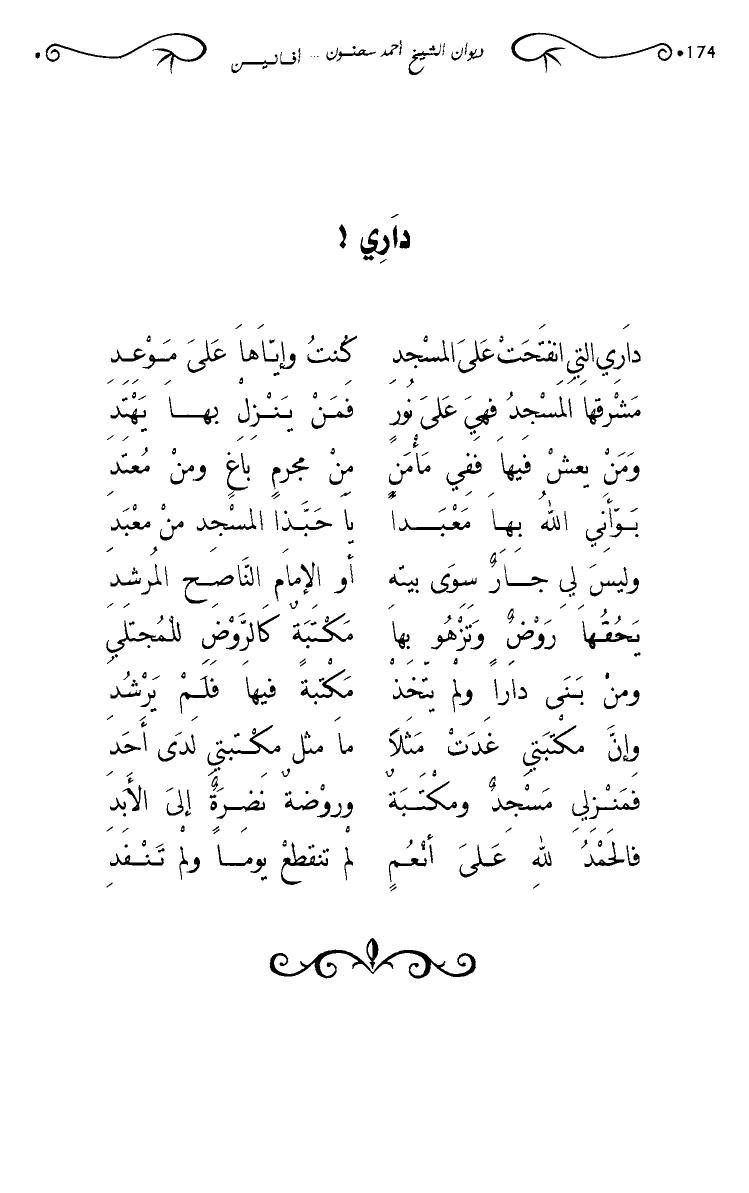 174 ديوان الشيخ أحمد سحنون ... أفانيــن
دَارِي !
دَارِي التِي انفتَحَتْ عَلىَ المسْجدِ كُنتُ وإيّاهاَ عَلىَ مَوْعـدِ
مَشْرقها المسْجدُ فهيَ عَلىَ نُورٍ فمَنْ يَنْزلْ بهـا يَهْتَدِ
وَمَنْ يعشْ فيهاَ ففي مَأْمَنٍ مِنْ مجرمٍ باغٍ ومنْ مُعتَدِ
بَوّأَني اللهُ بهـا مَعْبَـداً ياَ حَبَّذاَ المسْجد منْ معْبَدِ
وليسَ لي جـارٌ سوَى بيتهِ أو الإمامِ النَّاصـحِ المُرشدِ
يَحُفّـهاَ رَوْضٌ وَتَزْهُو بها مَكْتبَةٌ كالرَّوْضِ للْمُجتلي
ومنْ بَنَى داراً ولمْ يتّخذْ مَكْتبةً فيها فلَـمْ يَرْشُدِ
وإنَّ مكْتبَتي غَدَتْ مَثلاً ما مثل مكْتـبتي لدَى أَحَدِ
فمَنْـزلِي مَسْجدٌ ومكْتَبَةٌ وروْضةٌ نضـرَةٌ إلىَ الأَبدِ
فالحَمْدُ للهِ عَـلىَ أنْعُـمٍ لمْ تنقطعْ يومـاً ولمْ تَنْـفَدِ